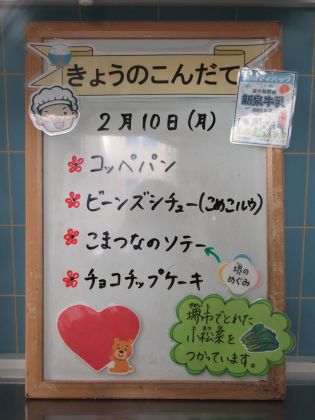 きょうのこんだて
新泉牛乳
2月10日(月)
コッペパン
ビーンズシチュー(こめこルウ)
こまつなのソテー
堺の
めぐみ
チョコチップケーキ
堺市でとれた
小松菜を
つかっています。